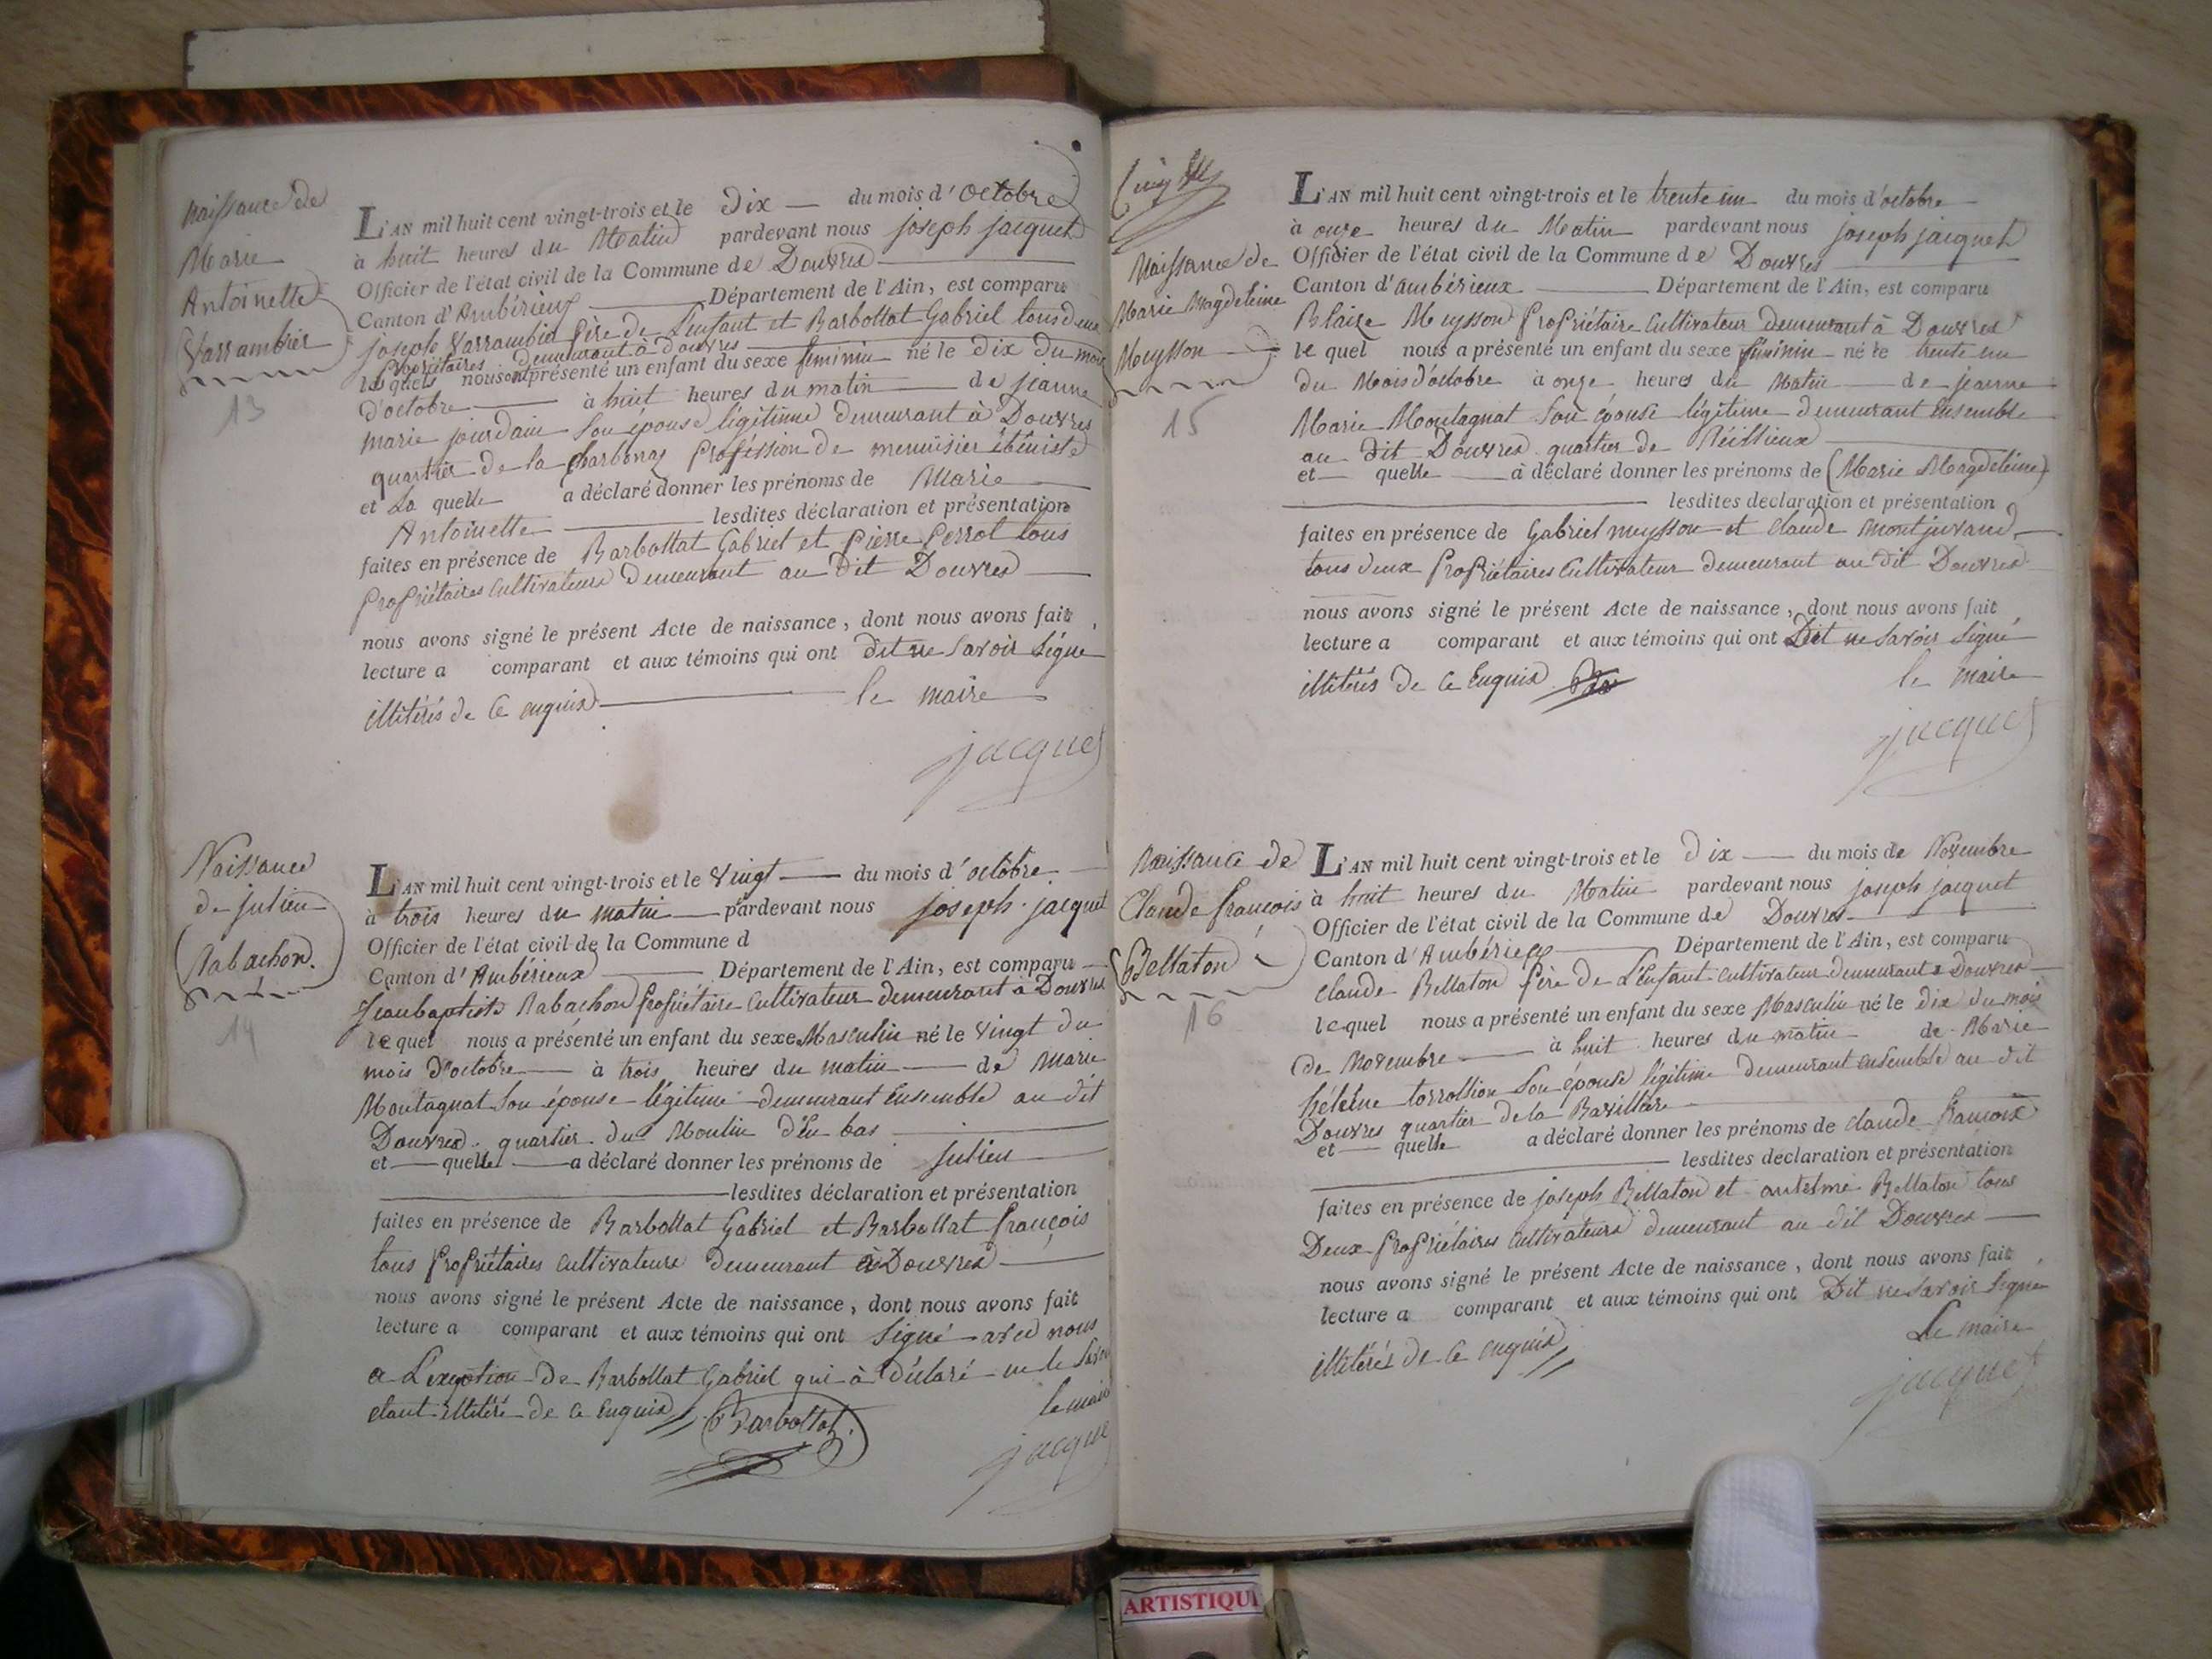 Naissance de
Marie
Antoinette
Varrambier
13
L'AN mil huit cent vingt-trois et le dix du mois d'octobre
à huit heures du Matin pardevant nous joseph jacquet
Officier de l'état civil de la Commune de Douvres
Canton d'Ambérieux Département de l'Ain, est comparu
joseph Varrambier Père de L'enfant et Barbollat Gabriel tous deux
Propriétaires demeurant à douvres
lesquels nous ont présenté un enfant du sexe feminin né le dix du mois
d'octobre à huit heures du matin de jeanne
marie jourdain son épouse légitime demeurant à Douvres
quartier de la Charbonaz Proféssion de menuisier ébéniste
et La quelle a déclaré donner les prénoms de Marie
Antoinette lesdites déclaration et présentation
faites en présence de Barbollat Gabriel et Pierre Perrot tous
Propriétaires Cultivateurs demeurant au dit Douvres
nous avons signé le présent Acte de naissance, dont nous avons fait
lecture a comparant et aux témoins qui ont dit ne Savoir Signe
illitérés de Ce enquis le maire
jacquet
Naissance
de julien
Rabachon.
14
L'AN mil huit cent vingt-trois et le Vingt du mois d'octobre
à trois heures du matin pardevant nous joseph jacquet
Officier de l'état civil de la Commune d
Canton d'Ambérieux Département de l'Ain, est comparu
Jeanbaptiste Rabachon Propriétaire Cultivateur demeurant à Douvres
lequel nous a présenté un enfant du sexe Masculin né le Vingt du
mois d'octobre à trois heures du matin de Marie
Montagnat Son épouse légitime demeurant Ensemble au dit
Douvres quartier du Moulin d'En bas
et quelle a déclaré donner les prénoms de Julien
lesdites déclaration et présentation
faites en présence de Barbollat Gabriel et Barbollat françois
tous Propriétaires Cultivateurs demeurant à Douvres
nous avons signé le présent Acte de naissance, dont nous avons fait
lecture a comparant et aux témoins qui ont Signé avec nous
a L'exeption de Barbollat Gabriel qui à déclaré ne le Savoir
étant illitéré de Ce Enquis Barbollat. le maire
jacquet
Naissance de
Marie Magdeleine
Meysson
15
L'AN mil huit cent vingt-trois et le trente un du mois d'octobre
à onze heures du Matin pardevant nous joseph jacquet
Officier de l'état civil de la Commune de Douvres
Canton d'ambérieux Département de l'Ain, est comparu
Blaize Meysson Propriétaire Cultivateur demeurant à Douvres
lequel nous a présenté un enfant du sexe féminin né le trente un
du Mois d'octobre à onze heures du Matin de jeanne
Marie Montagnat Son épouse légitime demeurant Ensemble
au dit Douvres quartier de
et quelle à déclaré donner les prénoms de (Marie Magdeleine)
lesdites déclaration et présentation
faites en présence de Gabriel meysson et claude montjuvand
tous deux Propriétaires Cultivateur demeurant au dit Douvres
nous avons signé le présent Acte de naissance, dont nous avons fait
lecture a comparant et aux témoins qui ont Dit ne Savoir Signé
illitérés de Ce Enquis le maire
jacquet
Naissance de
Claude françois
Bellaton
16
L'AN mil huit cent vingt-trois et le dix du mois de Novembre
à huit heures du Matin pardevant nous joseph jacquet
Officier de l'état civil de la Commune de Douvres
Canton d'Ambérieux Département de l'Ain, est comparu
claude Bellaton Père de L'Enfant Cultivateur demeurant a Douvres
lequel nous a présenté un enfant du sexe Masculin né le dix du mois
de Novembre à huit heures du matin de Marie
héléine Son épouse légitime demeurant ensemble au dit
Douvres quartier de la
et quelle a déclaré donner les prénoms de claude françois
lesdites déclaration et présentation
faites en présence de joseph Bellaton et antelme Bellaton tous
Deux Propriétaires Cultivateurs demeurant au dit Douvres
nous avons signé le présent Acte de naissance, dont nous avons fait
lecture a comparant et aux témoins qui ont Dit ne Savoir Signé
illitérés de Ce enquis Le maire
jacquet
ARTISTIQU